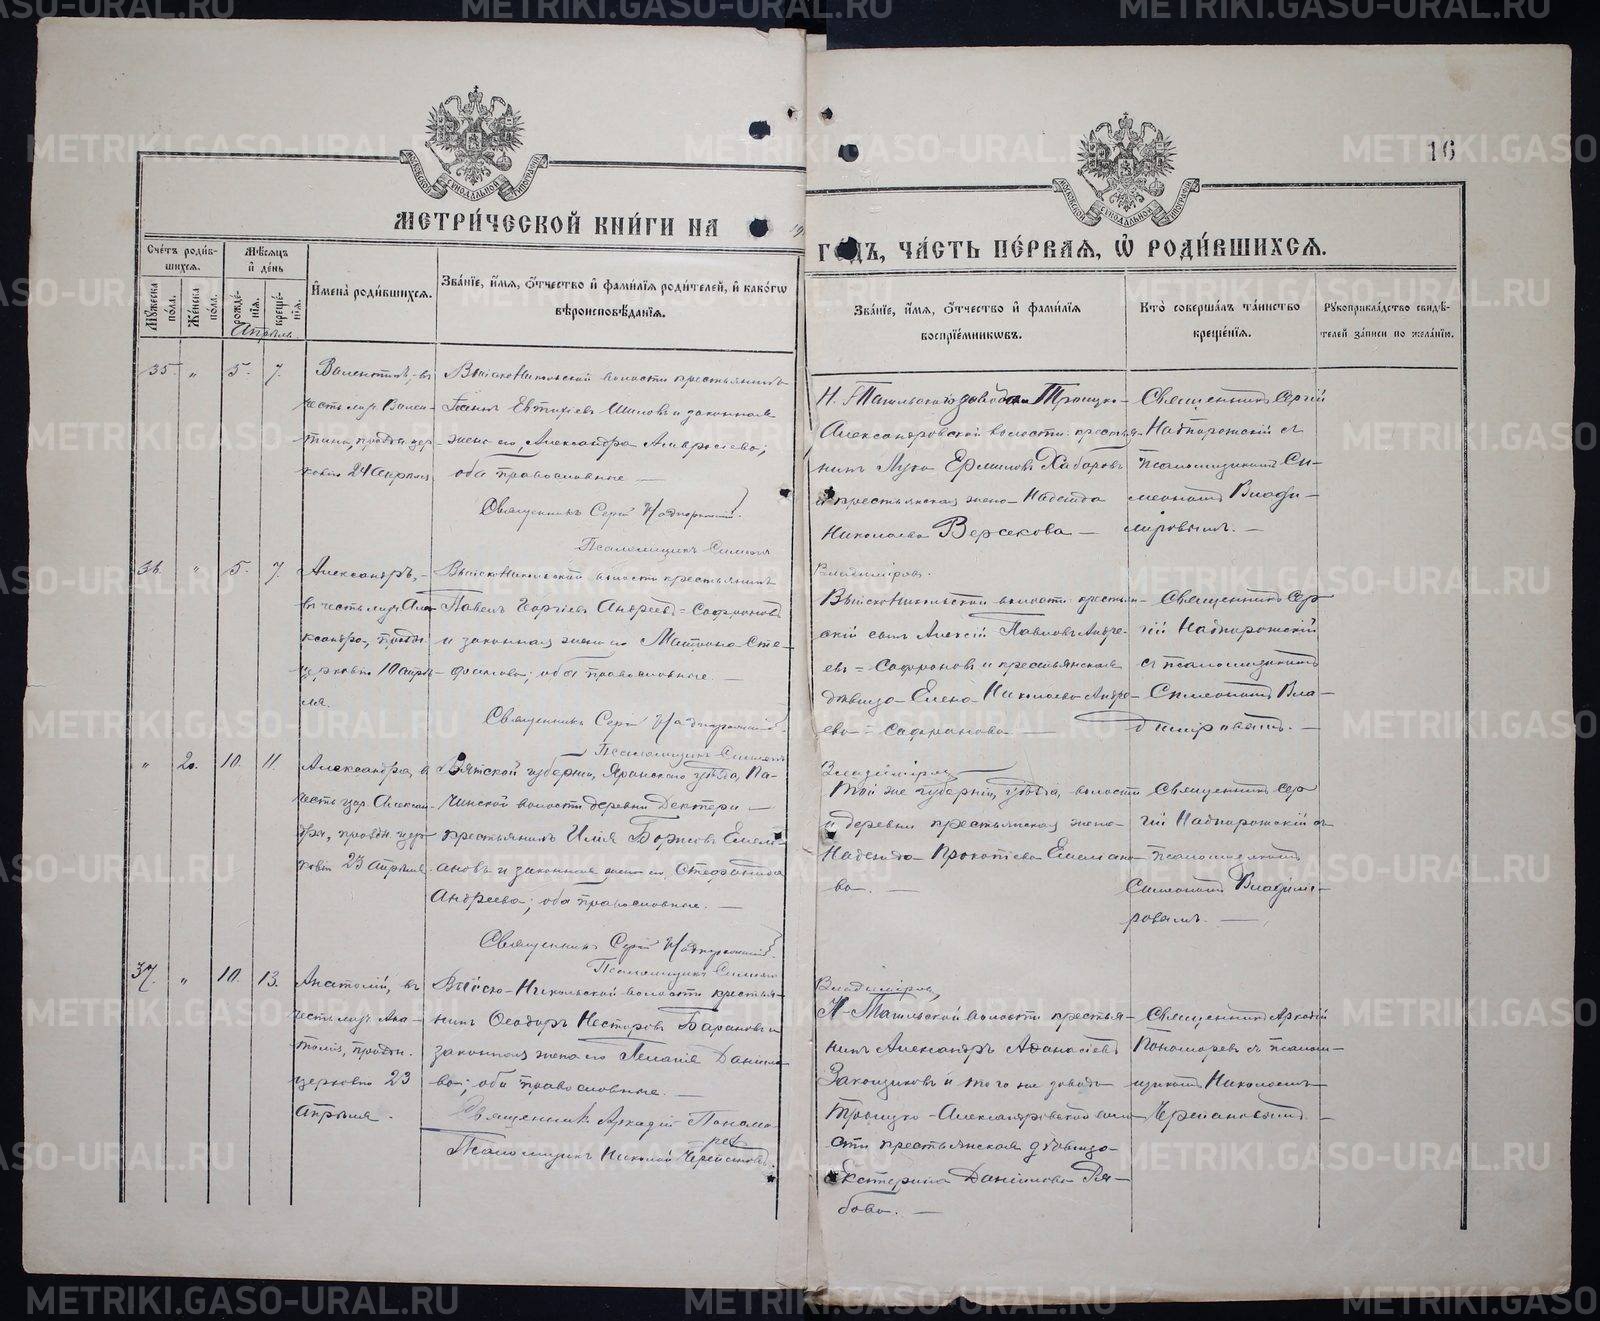 МЕТРИ́ЧЕСКОЙ КНИ́ГИ НА
ГОДЪ, ЧА́СТЬ ПЕ́РВАЯ, Ѡ҆ РОДИ́ВШИХСЯ.
16
Сче́тъ роди́вшихся.
Мꙋ́жеска по́ла.
Же́нска по́ла.
Мѣ́сяцъ и҆ де́нь
рожде́нїя.
креще́нїя.
И҆мена̀ роди́вшихся.
Зва́нїе, и҆́мя, ѻ҆́тчество и҆ фами́лїя роди́телей, и҆ како́гѡ
вѣроисповѣ́данїя.
Зва́нїе, и҆́мя, ѻ҆́тчество и҆ фами́лїя
воспрїе́мникѡвъ.
Кто̀ соверша́лъ та́инство
креще́нїя.
Рꙋкоприкла́дство свидѣ́-
телей за́писи по жела́нїю.
Апрѣль
35. " 5. 7.
Валентинъ, въ
честь муч. Вален-
тина, праздн. цер-
ковію 24 апрѣля
Выйско-Никольской волости крестьянинъ
Евтихіевъ Шиловъ и законная
жена его, Александра Амвросіева;
оба православные. —
Священникъ Сергій Надпорожскій.
Псаломщикъ Симеонъ
Владиміровъ.
Н. Тагильскаго завода Троицко-
Александровской волости крестья-
нинъ Лука Ермиловъ Хабаровъ
и крестьянская жена Надежда
Николаева Версекова —
Священникъ Сергій
Надпорожскій съ
псаломщикомъ Си-
меономъ Влади-
міровымъ. —
36. " 5. 7.
Александръ, —
въ честь муч. Але-
ксандра, праздн.
церковію 10 апрѣ-
ля.
Выйско-Никольской волости крестьянинъ
Павелъ Георгіевъ Андреевъ-Сафроновъ
и законная жена его Матрона Сте-
фанова; оба православные. —
Священникъ Сергій Надпорожскій.
Псаломщикъ Симеонъ
Владиміровъ
Выйско-Никольской волости крестьян-
скій сынъ Алексій Павловъ Андре-
евъ-Сафроновъ и крестьянская
дѣвица Елена Николаева Андре-
ева-Сафронова. —
Священникъ Сер-
гій Надпорожскій
съ псаломщикомъ
Симеономъ Вла-
диміровымъ. —
" 20. 10. 11.
Александра, въ
честь цар. Алексан-
дры, праздн. цер-
ковію 23 апрѣля
Вятской губерніи, Яранскаго уѣзда, Па-
чинской волости деревни Дектери —
крестьянинъ Илія Борисовъ Емель-
ановъ и законная жена его Стефанида
Андреева; оба православные. —
Священникъ Сергій Надпорожскій.
Псаломщикъ Симеонъ
Владиміровъ
Той же губерніи, уѣзда, волости
и деревни крестьянская жена
Надежда Прокопіева Емельяно-
ва. —
Священникъ Сер-
гій Надпорожскій съ
псаломщикомъ
Симеономъ Владимі-
ровымъ. —
37. " 10. 13.
Анатолій, въ
честь муч. Ана-
толія, праздн.
церковію 23
апрѣля.
Выйско-Никольской волости крестья-
нинъ Ѳеодоръ Несторовъ Барановъ и
законная жена его Пелагія Данило-
ва; оба православные. —
Священникъ Аркадій Пономаревъ
Псаломщикъ Николай
Н-Тагильской волости крестья-
нинъ Александръ Аѳанасіевъ
Закощиковъ и того же завода
Троицко-Александровской воло-
сти крестьянская дѣвица
Екатерина Даніилова Ря-
бова. —
Священникъ Аркадій
Пономаревъ съ псалом-
щикомъ Николаемъ
METRIKI.GASO-URAL.RU